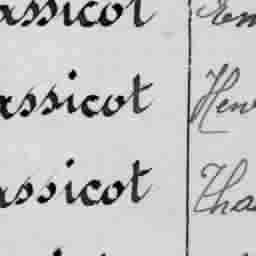 assicot Em
assicot Hen
assicot Tha